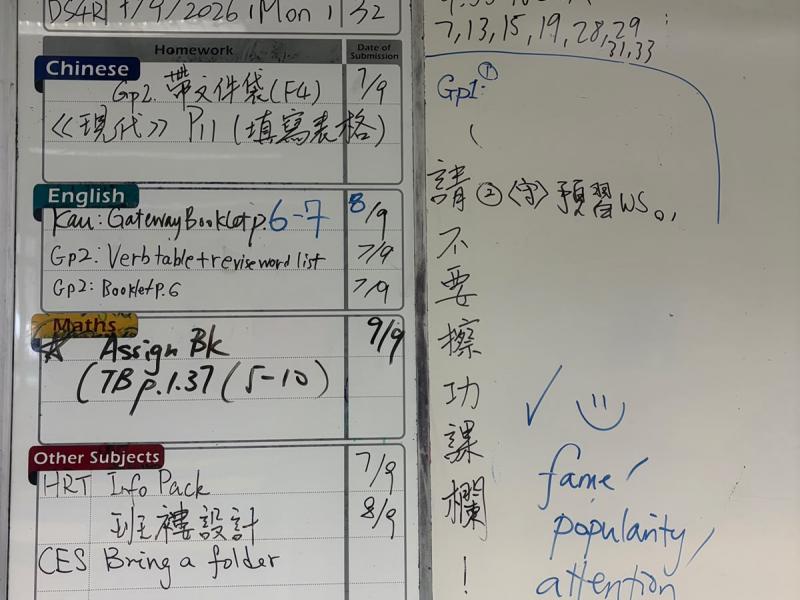 7/9/2026, Mon, 32
Homework
Date of Submission
Chinese
Gp2. 帶文件袋(F4) 7/9
《現代》 P11 (填寫表格)
English
Kau: Gateway Booklet p. 6-7 8/9
Gp2: Verb table + revise word list 7/9
Gp2: Booklet p.6 7/9
Maths
☆ Assign Bk 9/9
(TB p.1.37 (5-10)
Other Subjects
HRT Info Pack 7/9
班褸設計 8/9
CES Bring a folder
7, 13, 15, 19, 28, 29
31, 33
Gp1: ①
② 〈守〉預習WS。
請不要擦功課欄!
✓
fame,
popularity,
attention